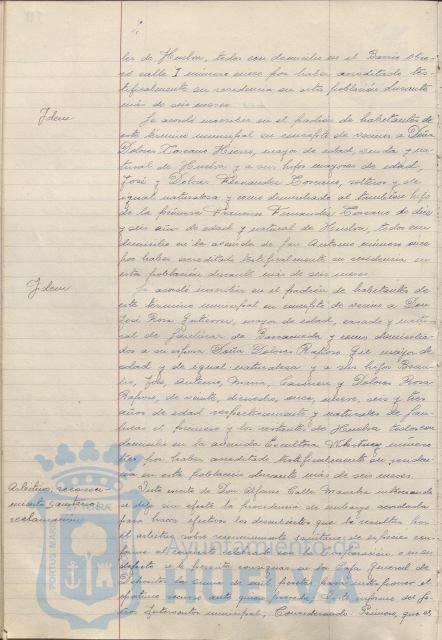 les de Huelva, todos con domicilio en el Barrio Obre-
ro calle I número once por haber acreditado tes-
tificalmente su residencia en esta población durante
más de seis meses.
Idem
Se acordó inscribir en el padrón de habitantes de
este término municipal en concepto de vecinos a Doña
Dolores Toscano mayor de edad, viuda y na-
tural de Huelva y a sus hijos mayores de edad,
José y Dolores Fernández Toscano, solteros y de
igual naturaleza y como domiciliado al también hijo
de la primera Francisco Fernández Toscano de diez
y seis años de edad y natural de Huelva, todos con
domicilio en la avenida de San Antonio número once
por haber acreditado testificalmente su residencia en
esta población durante más de seis meses.
Idem
Se acordó inscribir en el padrón de habitantes de
este término municipal en concepto de vecino a Don
José Rosa Gutiérrez, mayor de edad, casado y natu-
ral de Sanlúcar de Barrameda y como domicilia-
dos a su esposa Doña Dolores Raposo mayor de
edad y de igual naturaleza y a sus hijos
José, Antonio, María, y Dolores Rosa
Raposo, de veinte, once, nueve, seis y tres
años de edad respectivamente y naturales de San-
lúcar el primero y los restantes de Huelva todos con
domicilio en la avenida Escultora Whitney número
por haber acreditado testificalmente su residen-
cia en esta población durante más de seis meses.
Arbitrio, recono-
cimiento sanitario,
reclamación.
Visto escrito de Don Alfonso Calle interesando
se deje sin efecto la providencia de embargo acordada
para hacer efectivos los descubiertos que le resultan por
el arbitrio sobre reconocimiento sanitario de especies con-
forme al concierto celebrado con la Corporación o en su
defecto se le permita consignar en la Caja General de
Depósitos la suma de mil pesetas para interponer el
oportuno recurso ante quien proceda. Visto informe del Se-
ñor Interventor municipal; Considerando Primero, que el
Ayuntamiento de
PORTUS MARIS